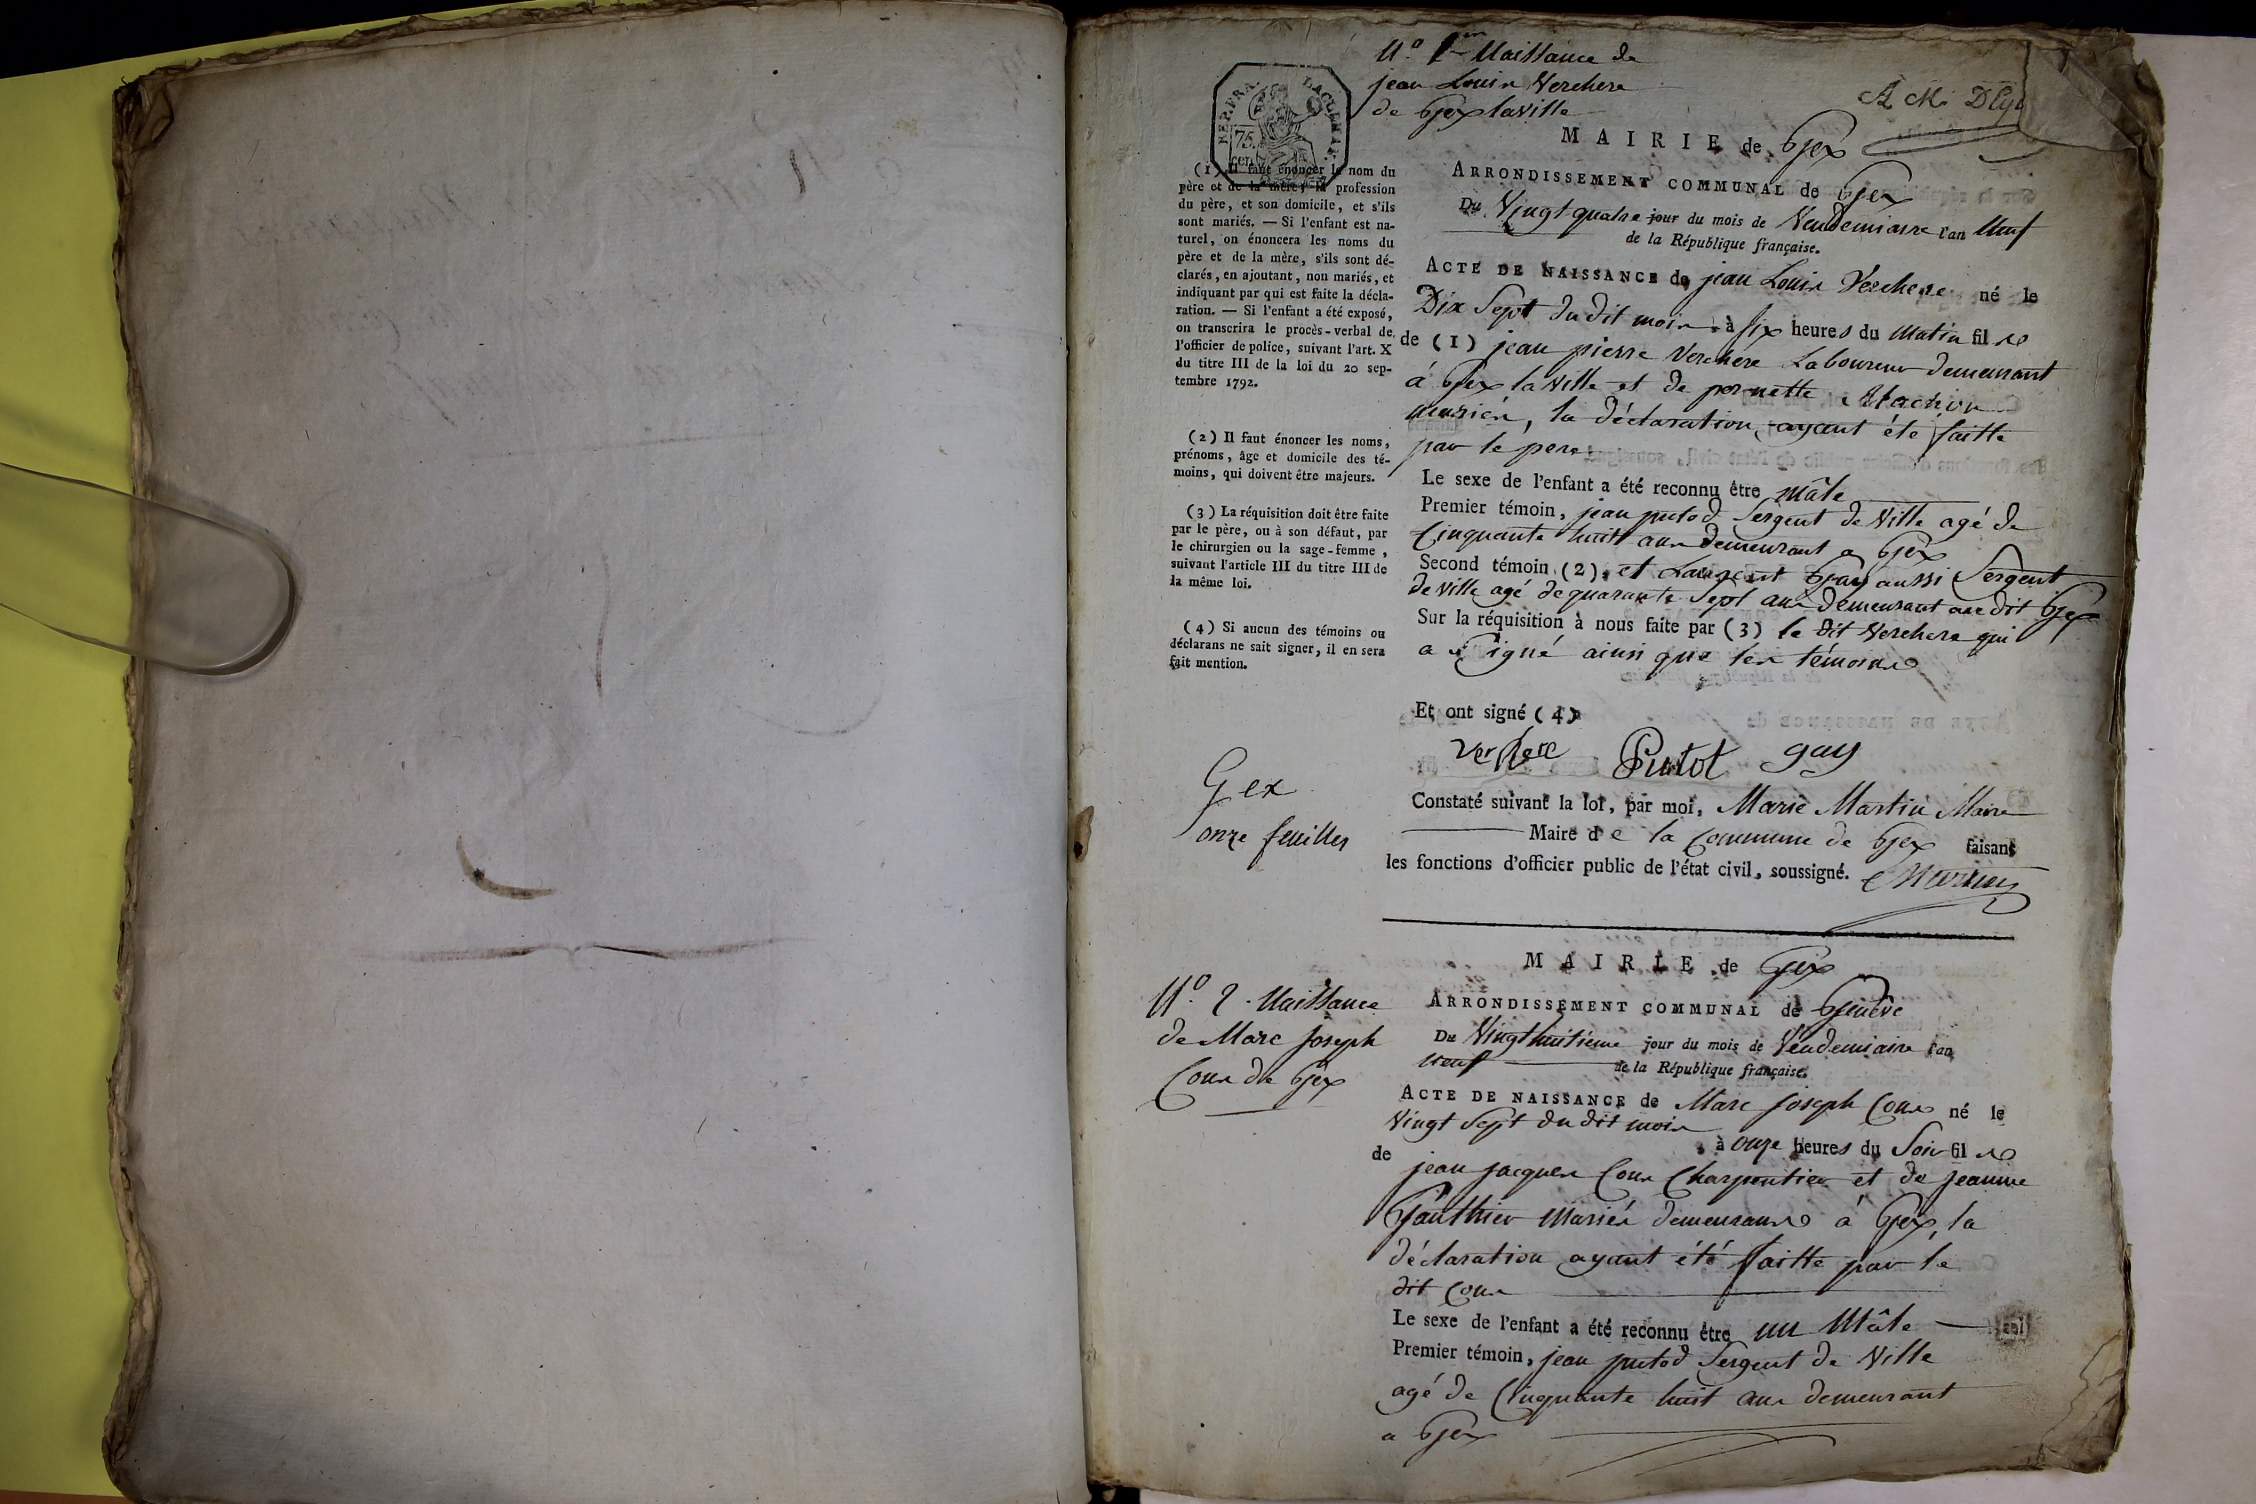 N.o 1.er Naissance de
jean Louis Verchere
de Gex la ville
REP. FRA.
75
cen.
MAIRIE de Gex
ARRONDISSEMENT COMMUNAL de Gex
Du Vingt quatre jour du mois de Vendemiaire l'an Neuf
de la République française.
ACTE DE NAISSANCE de jean Louis Verchere né le
Dix Sept du dit mois à six heures du Matin fils
de (1) jean pierre Verchere Laboureur demeurant
à Gex la ville et de pernette Machon
mariés, la déclaration ayant été faitte
par le pere
Le sexe de l'enfant a été reconnu être mâle
Premier témoin, jean putod Sergent de Ville agé de
Cinquante huit ans demeurant a Gex
Second témoin (2), et Laurent Gay aussi Sergent
de ville agé de quarante Sept ans demeurant au dit Gex
Sur la réquisition à nous faite par (3) le dit Verchere qui
a Signé ainsi que les témoins
Et ont signé (4)
verchere Putot gay
Constaté suivant la loi, par moi, Marie Martin Maire
Maire de la Commune de Gex faisant
les fonctions d'officier public de l'état civil, soussigné. Martin
(1) Il faut énoncer le nom du
père et de la mère, la profession
du père, et son domicile, et s'ils
sont mariés. — Si l'enfant est na-
turel, on énoncera les noms du
père et de la mère, s'ils sont dé-
clarés, en ajoutant, non mariés, et
indiquant par qui est faite la décla-
ration. — Si l'enfant a été exposé,
on transcrira le procès-verbal de
l'officier de police, suivant l'art. X
du titre III de la loi du 20 sep-
tembre 1792.
(2) Il faut énoncer les noms,
prénoms, âge et domicile des té-
moins, qui doivent être majeurs.
(3) La réquisition doit être faite
par le père, ou à son défaut, par
le chirurgien ou la sage-femme,
suivant l'article III du titre III de
la même loi.
(4) Si aucun des témoins ou
déclarans ne sait signer, il en sera
fait mention.
Gex
onze feuilles
N.o 2. Naissance
de Marc Joseph
Cour de Gex
MAIRIE de Gex
ARRONDISSEMENT COMMUNAL de Genêve
Du Vingt huitieme jour du mois de Vendemiaire l'an
neuf de la République française.
ACTE DE NAISSANCE de Marc Joseph Cour né le
Vingt Sept du dit mois
à onze heures du Soir fils
de jean jacques Cour Charpentier et de jeanne
Gauthier Mariés demeurans à Gex, la
déclaration ayant été faitte par le
dit Cour
Le sexe de l'enfant a été reconnu être un Mâle
Premier témoin, jean putod Sergent de Ville
agé de Cinquante huit ans demeurant
a Gex